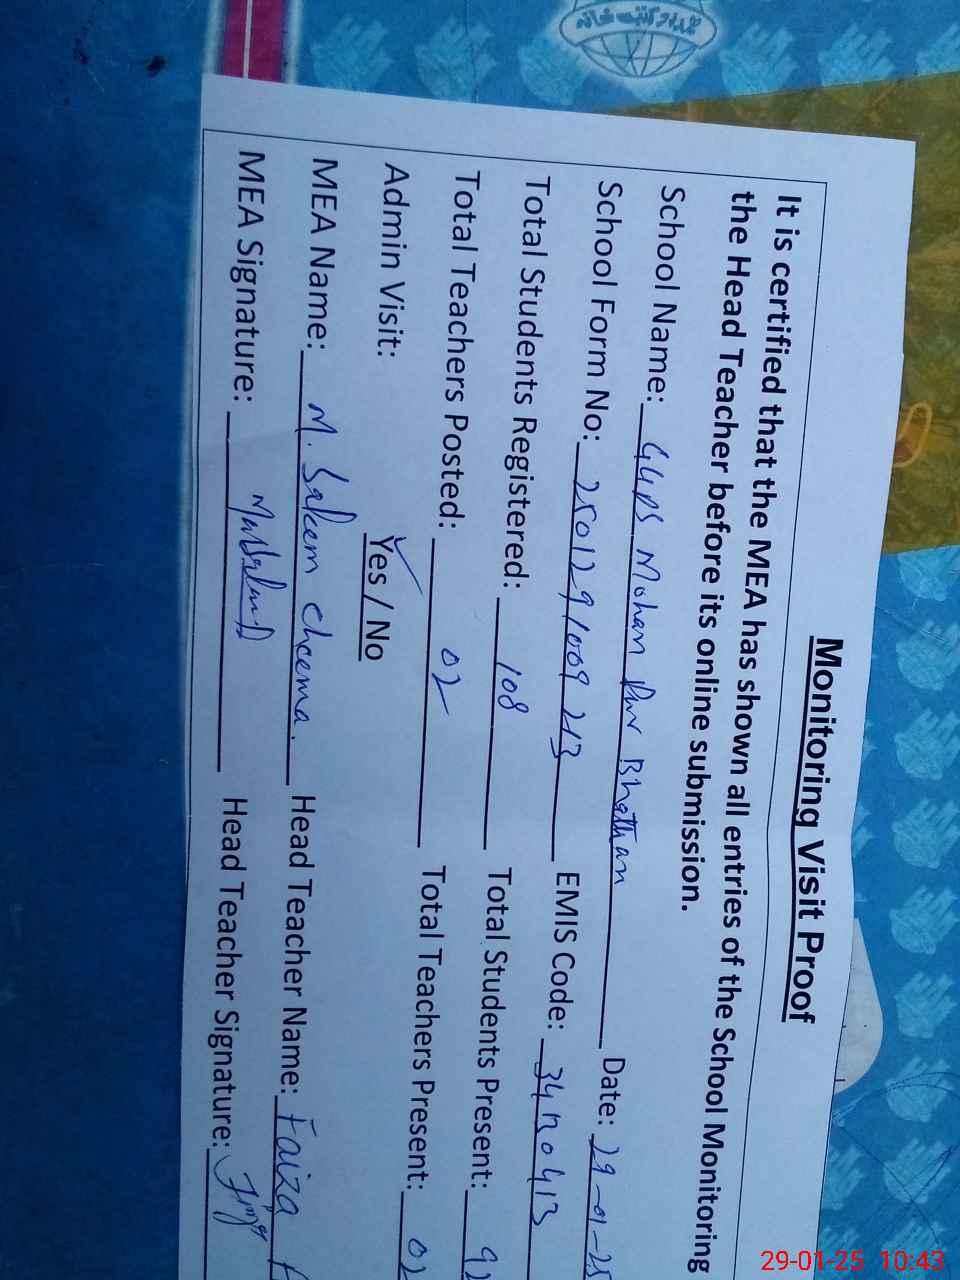 Monitoring Visit Proof
It is certified that the MEA has shown all entries of the School Monitoring
the Head Teacher before its online submission.
School Name: GGPS Mohan Pur Bhattian Date: 29-01-25
School Form No: 2501291009213 EMIS Code: 34120413
Total Students Registered: 108 Total Students Present: 92
Total Teachers Posted: 02 Total Teachers Present: 02
Admin Visit: Yes / No
MEA Name: M. Saleem Cheema. Head Teacher Name: Faiza
MEA Signature: Head Teacher Signature:
29-01-25 10:43